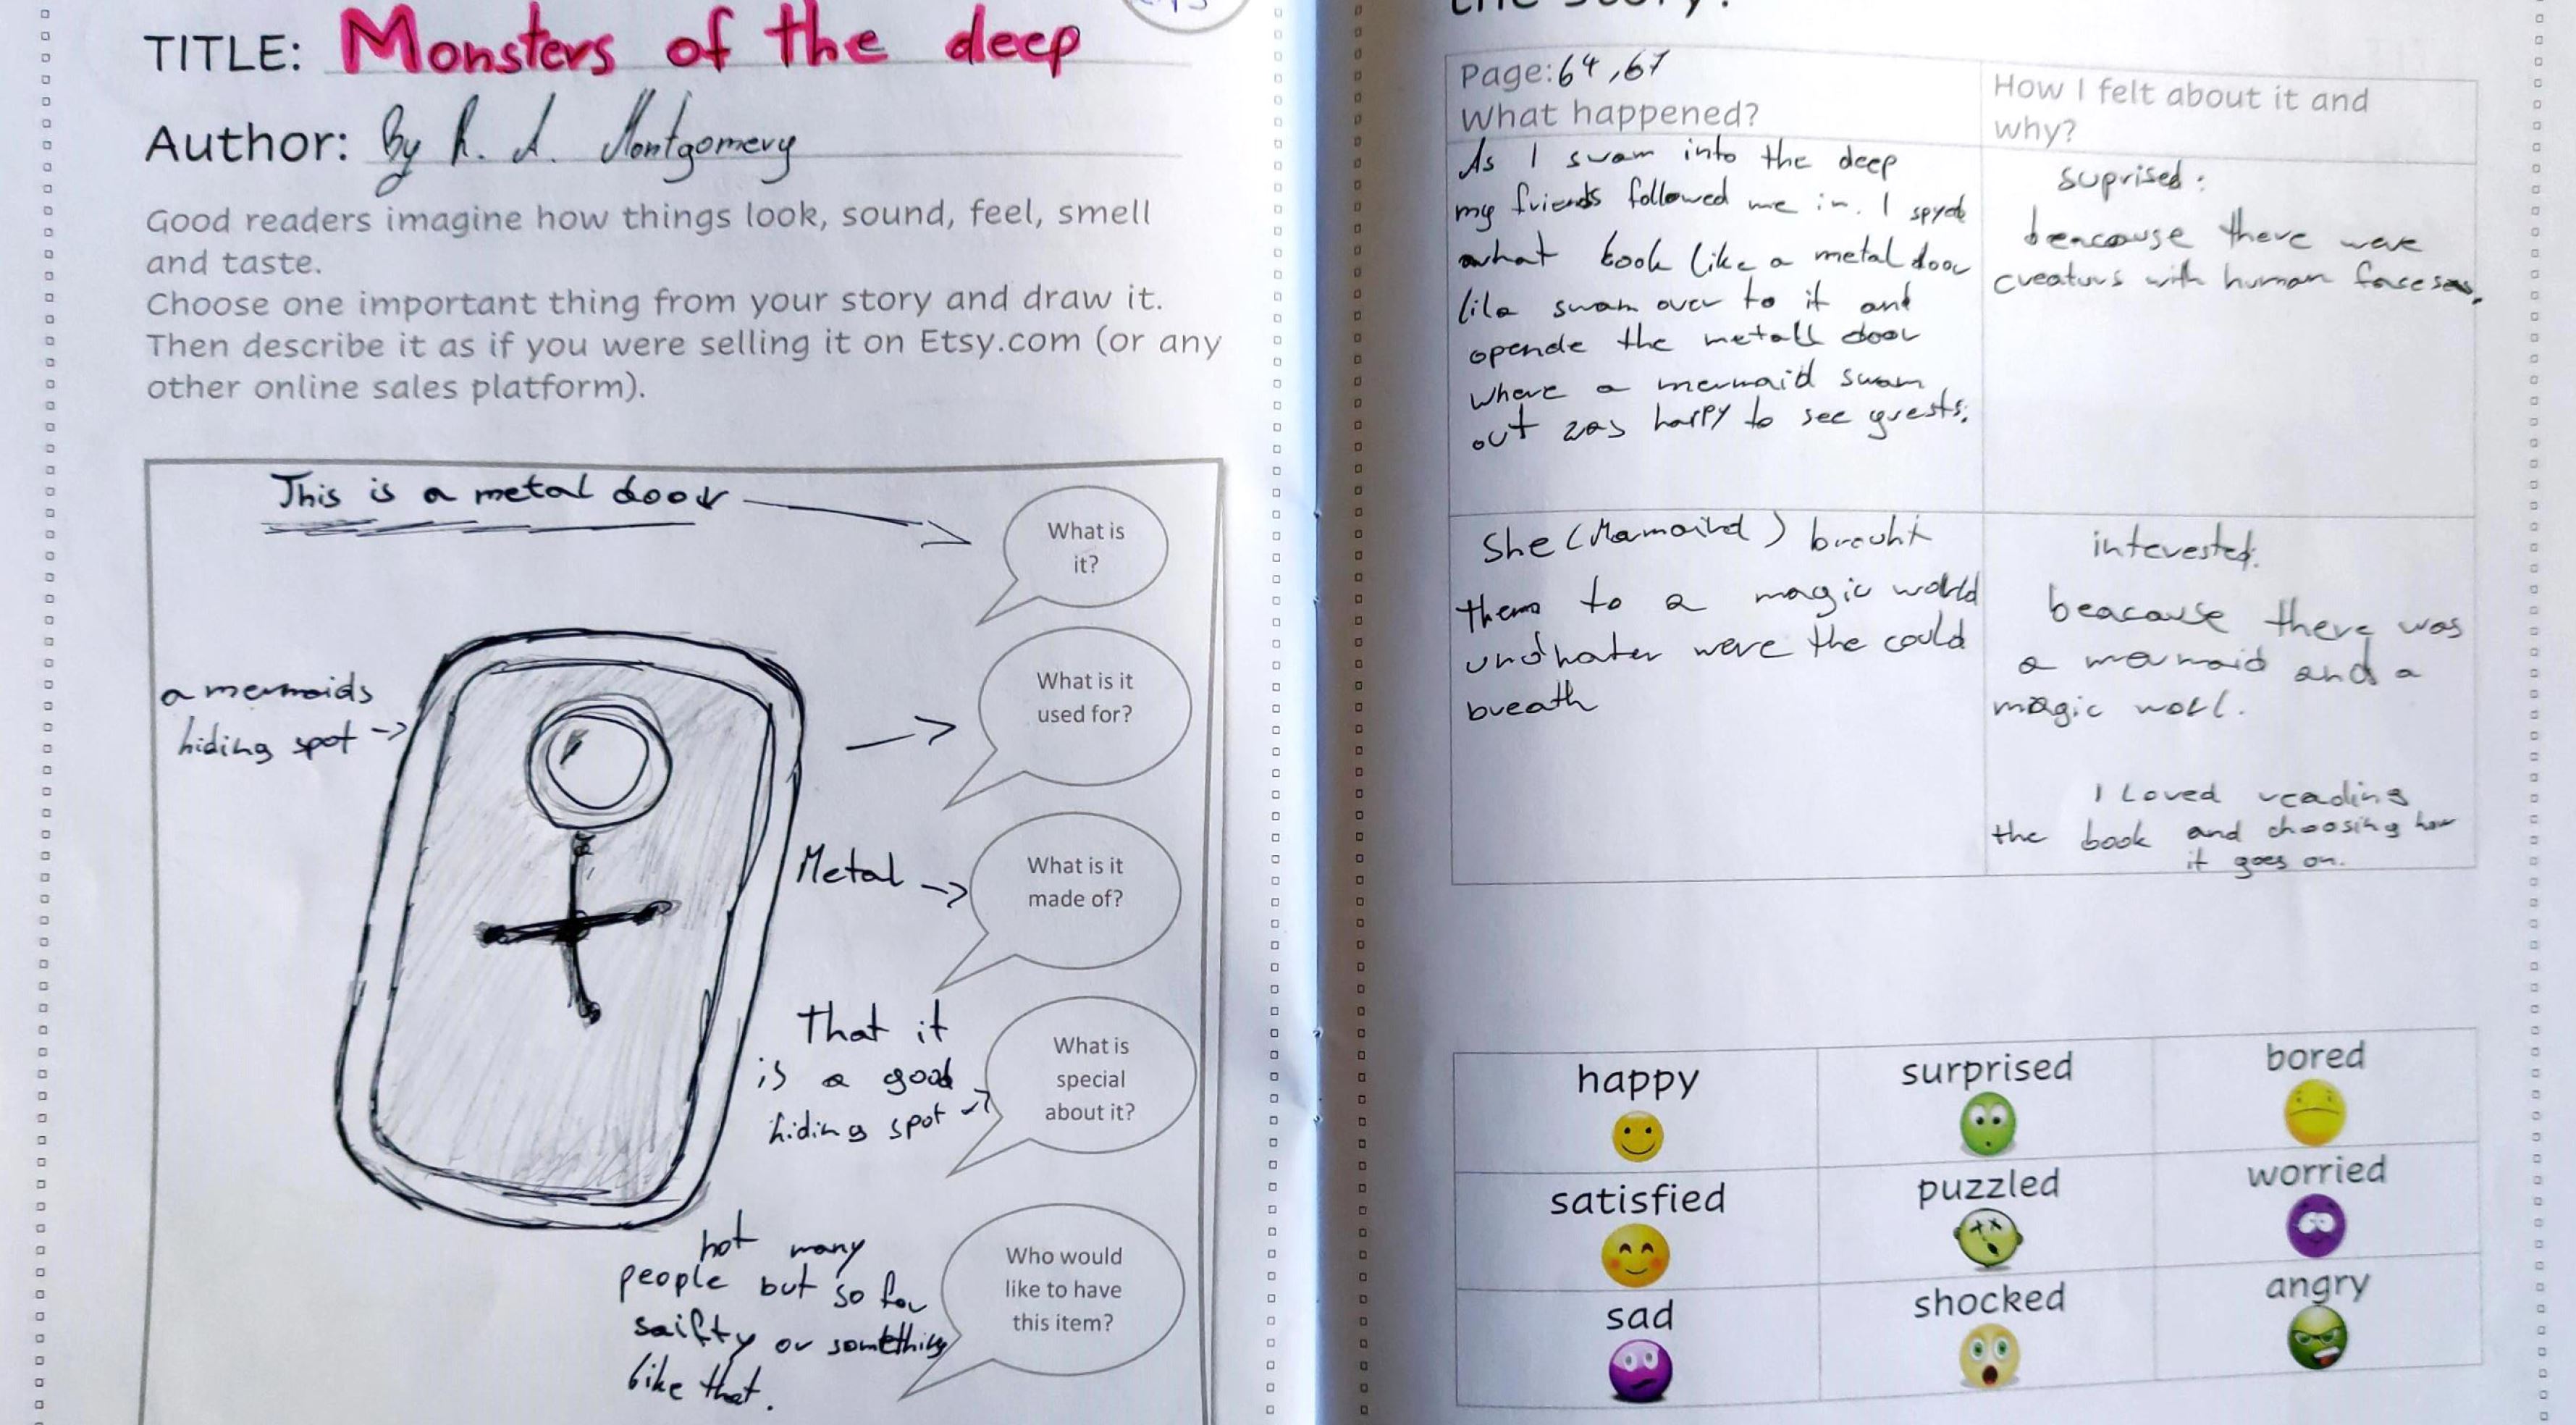 TITLE: Monsters of the deep
Author: By R. A. Montgomery
Good readers imagine how things look, sound, feel, smell
and taste.
Choose one important thing from your story and draw it.
Then describe it as if you were selling it on Etsy.com (or any
other online sales platform).
This is a metal door
What is
it?
a mermaids
hiding spot
What is it
used for?
Metal
What is it
made of?
That it
is a good
hiding spot
What is
special
about it?
not many
people but so for
saifty or something
like that.
Who would
like to have
this item?
the story?
Page: 64, 67
What happened?
As I swam into the deep
my friends followed me in. I spyed
what look like a metal door
swam over to it and
opende the metall door
where a mermaid swam
out was happy to see guests.
How I felt about it and
why?
suprised:
beacause there were
creaturs with human
She (Mamaird) brouht
them to a magic world
were the could
breath
interested:
beacause there was
a mermaid and a
magic worl.
I Loved reading
the book and choosing how
it goes on.
happy
surprised
bored
satisfied
puzzled
worried
sad
shocked
angry